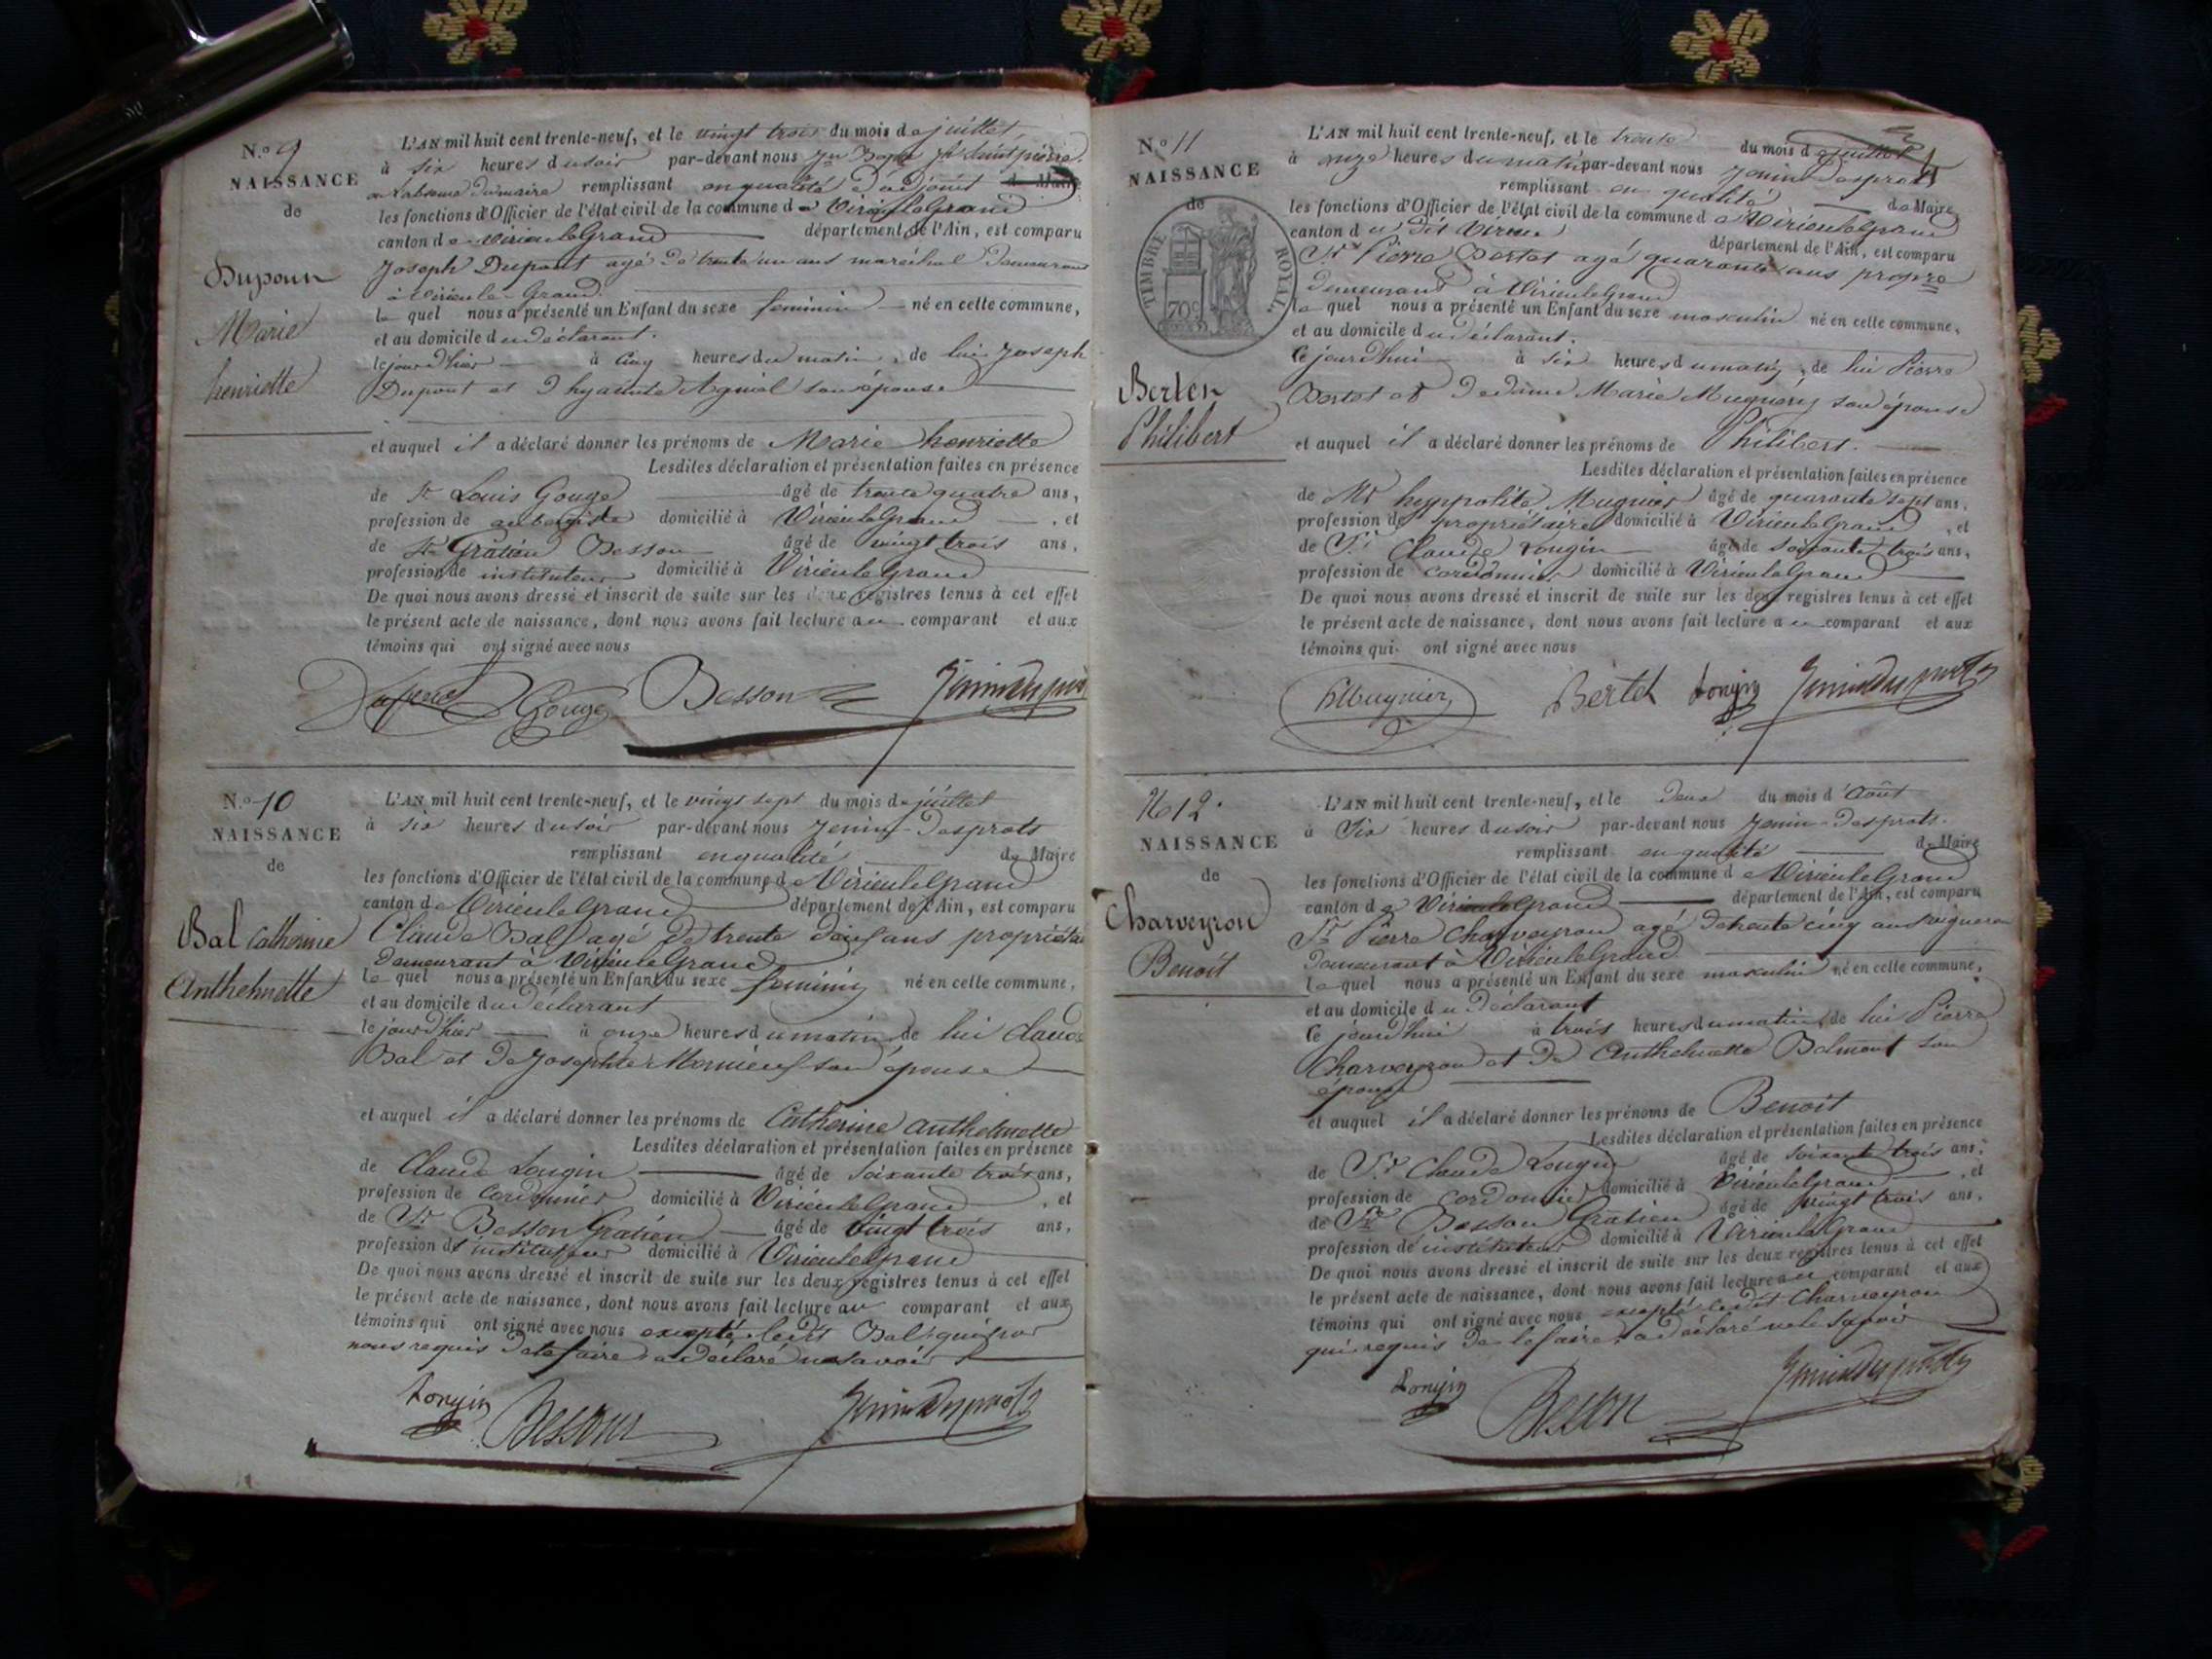 N.o 9
NAISSANCE
de
Dupont
Marie
henriette
L'AN mil huit cent trente-neuf, et le vingt trois du mois de juillet
à six heures du soir par-devant nous
remplissant en qualité d'adjoint de Maire
les fonctions d'Officier de l'état civil de la commune de Virieu le Grand
canton de Virieu le Grand département de l'Ain, est comparu
Joseph Dupont agé de trente un ans maréchal demeurant
à Virieu le Grand.
le quel nous a présenté un Enfant du sexe feminin né en cette commune,
et au domicile du déclarant.
le jour d'hier à cinq heures du matin, de lui Joseph
Dupont et d'hyacinte son épouse
et auquel il a déclaré donner les prénoms de Marie henriette
Lesdites déclaration et présentation faites en présence
de Sr Louis Gouge âgé de trente quatre ans,
profession de aubergiste domicilié à Virieu le Grand, et
de Sr Gratien Besson âgé de vingt trois ans,
profession de instituteur domicilié à Virieu le Grand
De quoi nous avons dressé et inscrit de suite sur les deux registres tenus à cet effet
le présent acte de naissance, dont nous avons fait lecture au comparant et aux
témoins qui ont signé avec nous
Dupont Gouge Besson Jenindesprots
N.o 10
NAISSANCE
de
Bal Catherine
Anthelmette
L'AN mil huit cent trente-neuf, et le vingt sept du mois de juillet
à six heures du soir par-devant nous Jenin-Desprots
remplissant en qualité de Maire
les fonctions d'Officier de l'état civil de la commune de Virieu le Grand
canton de Virieu le Grand département de l'Ain, est comparu
Claude Bal agé de trente ans propriétaire
demeurant à Virieu le Grand
le quel nous a présenté un Enfant du sexe feminin né en cette commune,
et au domicile du déclarant
le jour d'hier à onze heures du matin de lui Claude
Bal et de Josephte son épouse
et auquel il a déclaré donner les prénoms de Catherine Anthelmette
Lesdites déclaration et présentation faites en présence
de Claude Longin âgé de soixante trois ans,
profession de cordonnier domicilié à Virieu le Grand, et
de Sr Besson Gratien âgé de vingt trois ans,
profession d'instituteur domicilié à Virieu le Grand
De quoi nous avons dressé et inscrit de suite sur les deux registres tenus à cet effet
le présent acte de naissance, dont nous avons fait lecture au comparant et aux
témoins qui ont signé avec nous excepté ledit Bal qui par
nous requis de le faire a déclaré ne savoir
Longin Besson Jenindesprots
N.o 11
NAISSANCE
de
TIMBRE ROYAL
70c
Berten
Philibert
L'AN mil huit cent trente-neuf, et le trente du mois de juillet
à onze heures du matin par-devant nous Jenin Desprots
remplissant en qualité de Maire
les fonctions d'Officier de l'état civil de la commune de Virieu le Grand
canton du dit Virieu département de l'Ain, est comparu
Sr Pierre Bertet agé quarante ans propre
demeurant à Virieu le Grand
le quel nous a présenté un Enfant du sexe masculin né en cette commune,
et au domicile du déclarant.
ce jourd'hui à six heures du matin, de lui Pierre
Bertet et de dame Marie son épouse
et auquel il a déclaré donner les prénoms de Philibert.
Lesdites déclaration et présentation faites en présence
de Mr hyppolite Mugnier âgé de quarante sept ans,
profession de propriétaire domicilié à Virieu le Grand, et
de Sr Claude Longin âgé de soixante trois ans,
profession de cordonnier domicilié à Virieu le Grand
De quoi nous avons dressé et inscrit de suite sur les deux registres tenus à cet effet
le présent acte de naissance, dont nous avons fait lecture au comparant et aux
témoins qui ont signé avec nous
hMugnier Bertet Longin Jenindesprots
No 12.
NAISSANCE
de
Charveyron
Benoit
L'AN mil huit cent trente-neuf, et le deux du mois d'Août
à six heures du soir par-devant nous Jenin-Desprots.
remplissant en qualité de Maire
les fonctions d'Officier de l'état civil de la commune de Virieu le Grand
canton de Virieu le Grand département de l'Ain, est comparu
Sr Pierre Charveyron agé de trente cinq ans vigneron
demeurant à Virieu le Grand
le quel nous a présenté un Enfant du sexe masculin né en cette commune,
et au domicile du déclarant
ce jourd'hui à trois heures du matin, de lui Pierre
Charveyron et de Anthelmette Belmont son
épouse
et auquel il a déclaré donner les prénoms de Benoit
Lesdites déclaration et présentation faites en présence
de Sr Claude Longin âgé de soixante trois ans,
profession de cordonnier domicilié à Virieu le Grand, et
de Sr Besson Gratien âgé de vingt trois ans,
profession de instituteur domicilié à Virieu le Grand
De quoi nous avons dressé et inscrit de suite sur les deux registres tenus à cet effet
le présent acte de naissance, dont nous avons fait lecture au comparant et aux
témoins qui ont signé avec nous excepté ledit Charveyron
qui requis de le faire, a déclaré ne le savoir
Longin Besson Jenindesprots